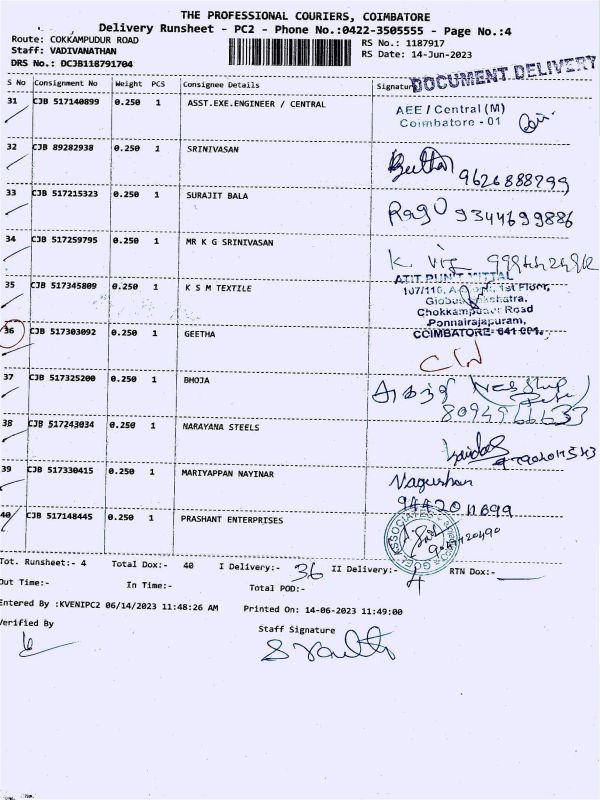 THE PROFESSIONAL COURIERS, COIMBATORE
Delivery Runsheet - PC2 - Phone No.:0422-3505555 - Page No.:4
Route: COKKAMPUDUR ROAD
RS No.: 1187917
Staff: VADIVANATHAN
RS Date: 14-Jun-2023
DRS No.: DCJB118791704
S No Consignment No Weight PCS Consignee Details Signature
DOCUMENT DELIVERY
31 CJB 517140899 0.250 1 ASST.EXE.ENGINEER / CENTRAL
AEE / Central (M)
Coimbatore - 01
32 CJB 89282938 0.250 1 SRINIVASAN
9626888799
33 CJB 517215323 0.250 1 SURAJIT BALA
Ragu 9344699886
34 CJB 517259795 0.250 1 MR K G SRINIVASAN
35 CJB 517345809 0.250 1 K S M TEXTILE
Chokkampudur Road
Ponnairajapuram,
COIMBATORE- 641 001.
36 CJB 517303092 0.250 1 GEETHA
37 CJB 517325200 0.250 1 BHOJA
38 CJB 517243034 0.250 1 NARAYANA STEELS
39 CJB 517330415 0.250 1 MARIYAPPAN NAYINAR
40 CJB 517148445 0.250 1 PRASHANT ENTERPRISES
Tot. Runsheet:- 4 Total Dox:- 40 I Delivery:- 36 II Delivery:- 4 RTN Dox:-
Out Time:- In Time:- Total POD:-
Entered By :KVENIPC2 06/14/2023 11:48:26 AM Printed On: 14-06-2023 11:49:00
Verified By
Staff Signature